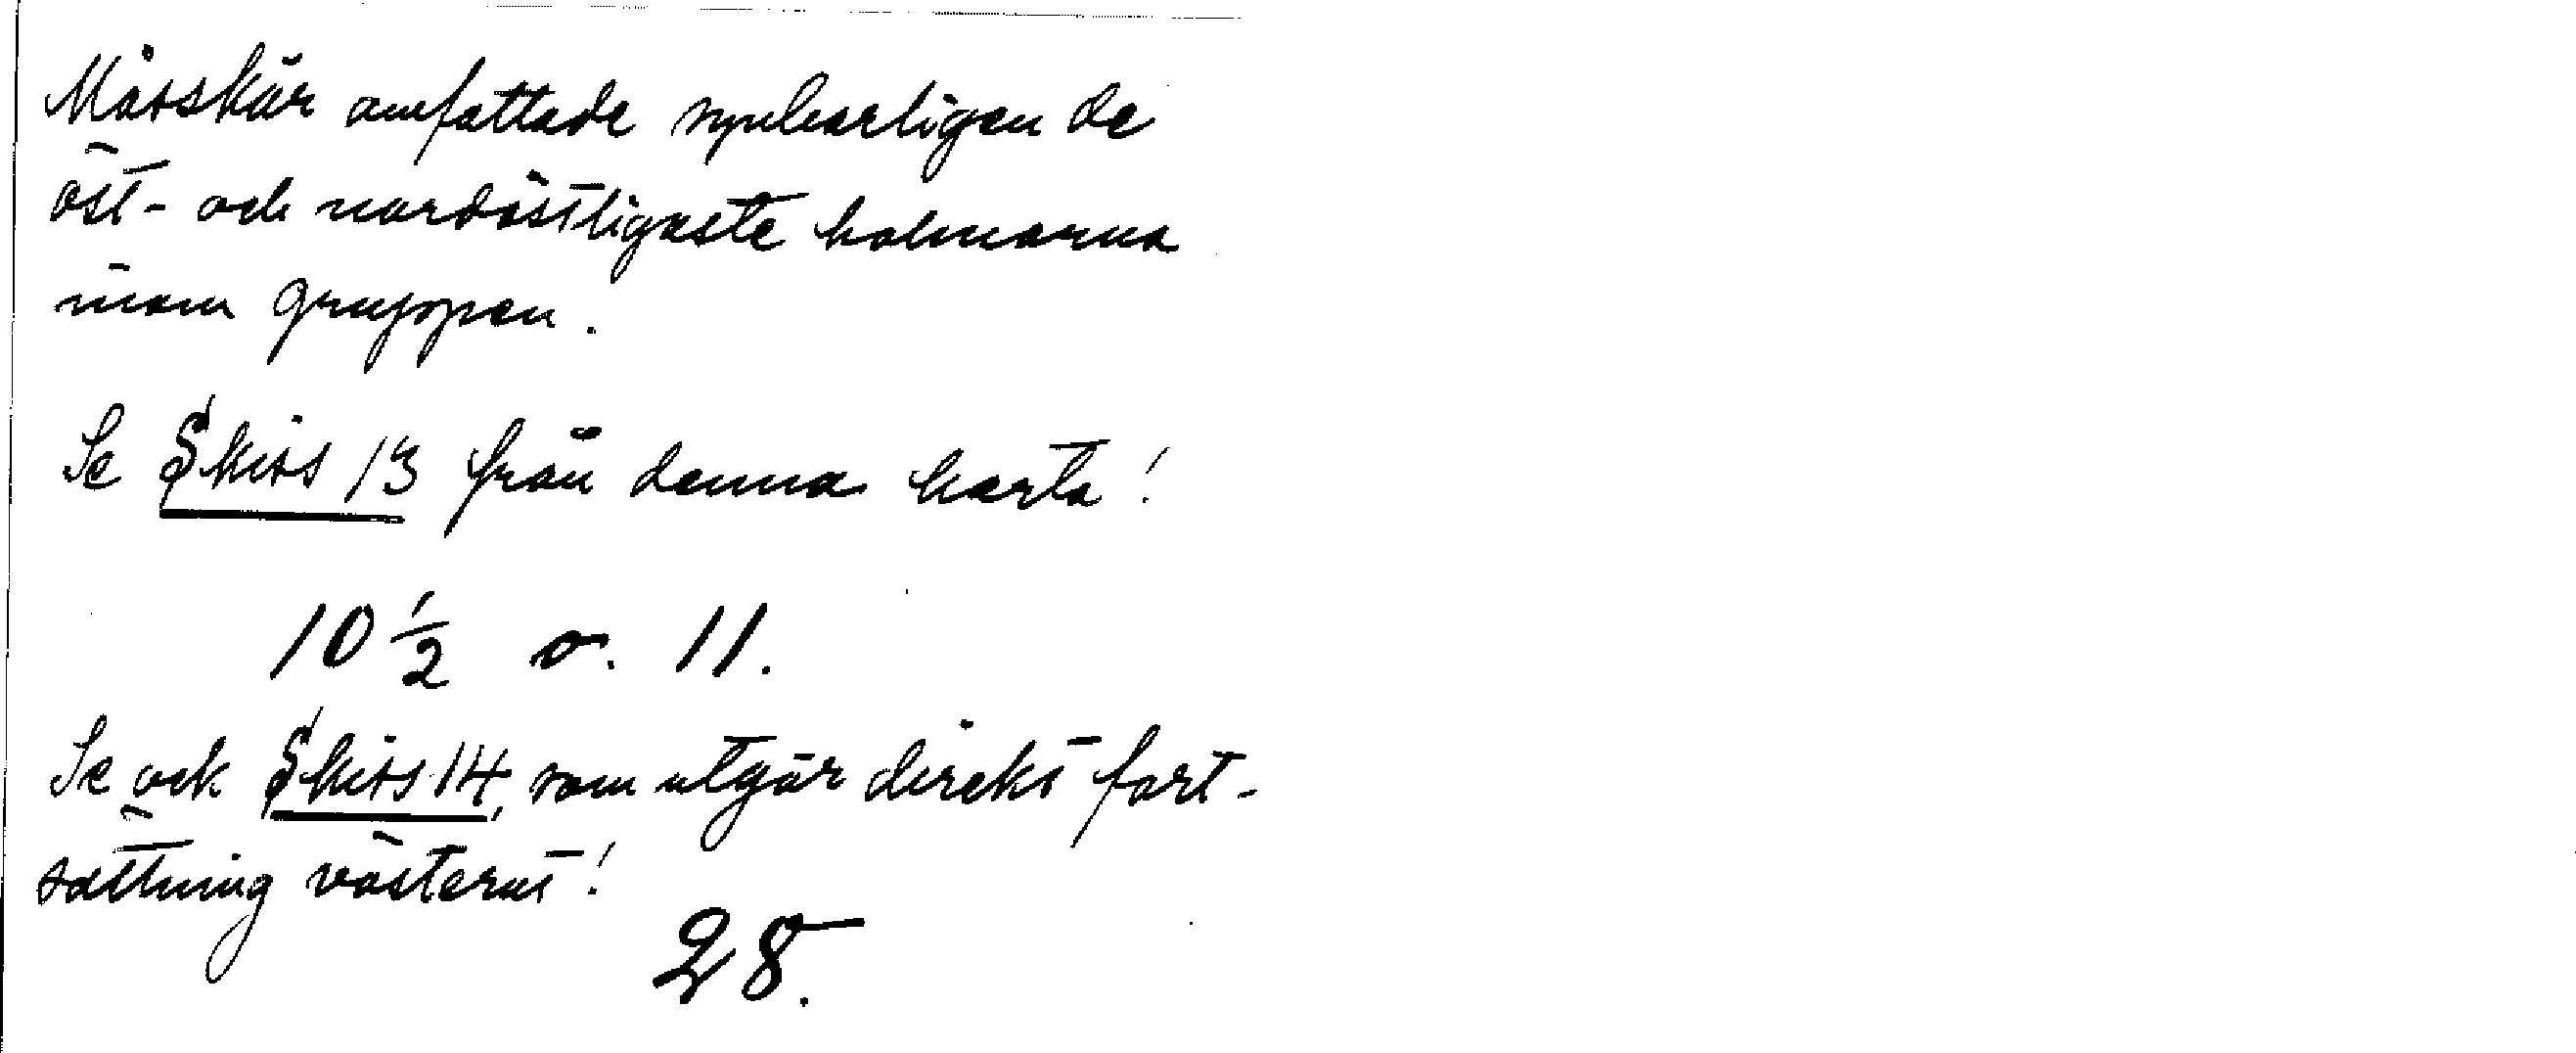 Måsskär omfattade synbarligen de
öst- och nordöstligaste holmarna
inom gruppen.
Se Skiss 13 från denna karta!
10 1/2 o. 11.
Se ock Skiss 14, som utgör direkt fort-
sättning västerut!
28.